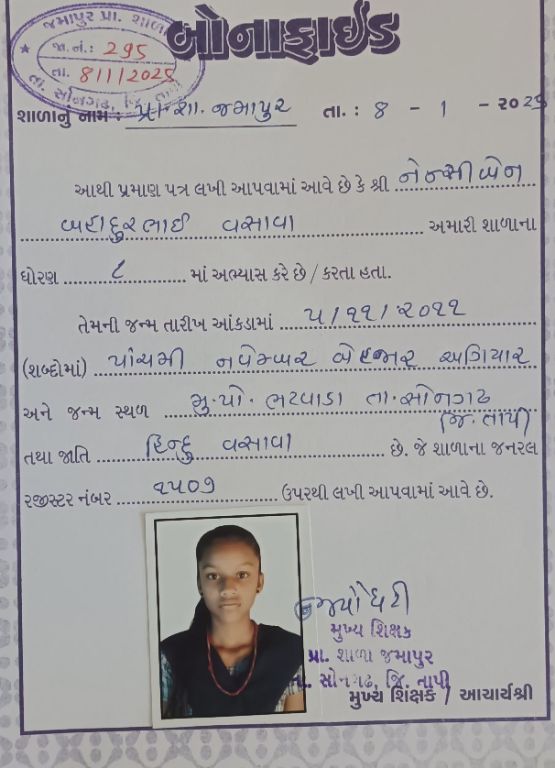 જમાપુર પ્રા. શાળા
જા.નં.: 295
તા. 8/1/2025
તા. સોનગઢ, જિ. તાપી
બોનાફાઈડ
શાળાનું નામ : પ્રા. શા. જમાપુર તા. : ૪ - ૧ - ૨૦૨૫
આથી પ્રમાણ પત્ર લખી આપવામાં આવે છે કે શ્રી નેન્સીબેન
બહાદુરભાઈ વસાવા અમારી શાળાના
ધોરણ ૮ માં અભ્યાસ કરે છે / કરતા હતા.
તેમની જન્મ તારીખ આંકડામાં ૫/૧૧/૨૦૧૧
(શબ્દોમાં) પાંચમી નવેમ્બર બેહજાર અગિયાર
અને જન્મ સ્થળ મુ.પો. ભટવાડા તા. સોનગઢ
જિ. તાપી
તથા જાતિ હિન્દુ વસાવા છે. જે શાળાના જનરલ
રજીસ્ટર નંબર ૧૫૦૭ ઉપરથી લખી આપવામાં આવે છે.
મુખ્ય શિક્ષક
પ્રા. શાળા જમાપુર
તા. સોનગઢ, જિ. તાપી
મુખ્ય શિક્ષક / આચાર્યશ્રી